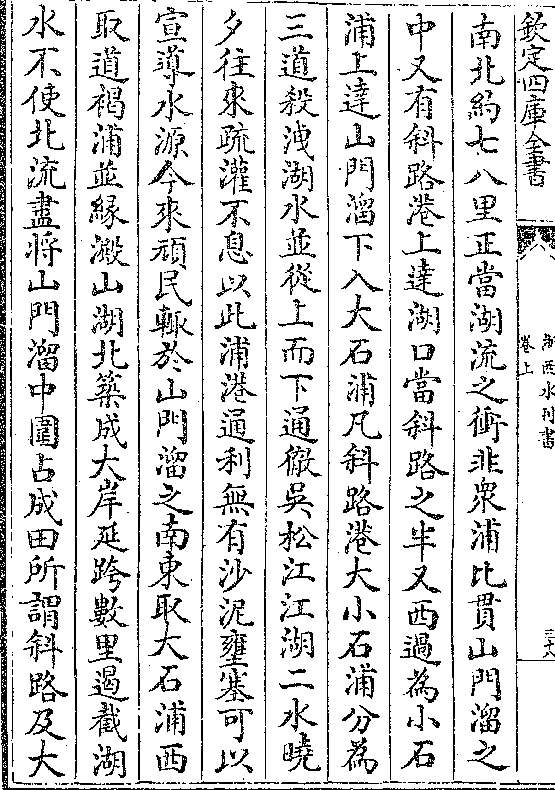 欽定四庫全書
浙西水利書
卷上
三十八
南北約七八里正當湖流之衝非衆浦比貫山門溜之
中又有斜路港上達湖口當斜路之半又西過為小石
浦上達山門溜下入大石浦凡斜路港大小石浦分為
三道殺洩湖水並從上而下通徹吳松江江湖二水曉
夕往來疏灌不息以此浦港通利無有沙泥壅塞可以
宣導水源今來頑民輒於山門溜之南東取大石浦西
取道褐浦並緣澱山湖北築成大岸延跨數里遏截湖
水不使北流盡將山門溜中圍占成田所謂斜路及大